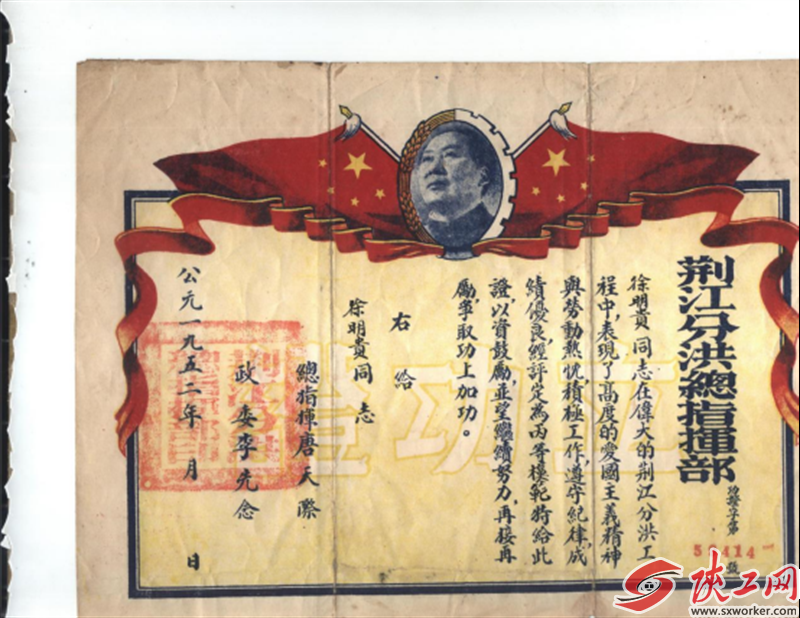 荆江分洪總指揮部
功證字第
50414
號
徐明貴同志在偉大的荆江分洪工
程中,表現了高度的愛國主義精神
與勞動熱忱,積極工作,遵守紀律,成
績優良,經評定為丙等模範,特給此
證,以資鼓勵,並望繼續努力,再接再
勵,爭取功上加功。
右給
徐明貴同志
總指揮唐天際
政委李先念
公元一九五二年 月 日
立功證
陕工网
www.sxworker.com